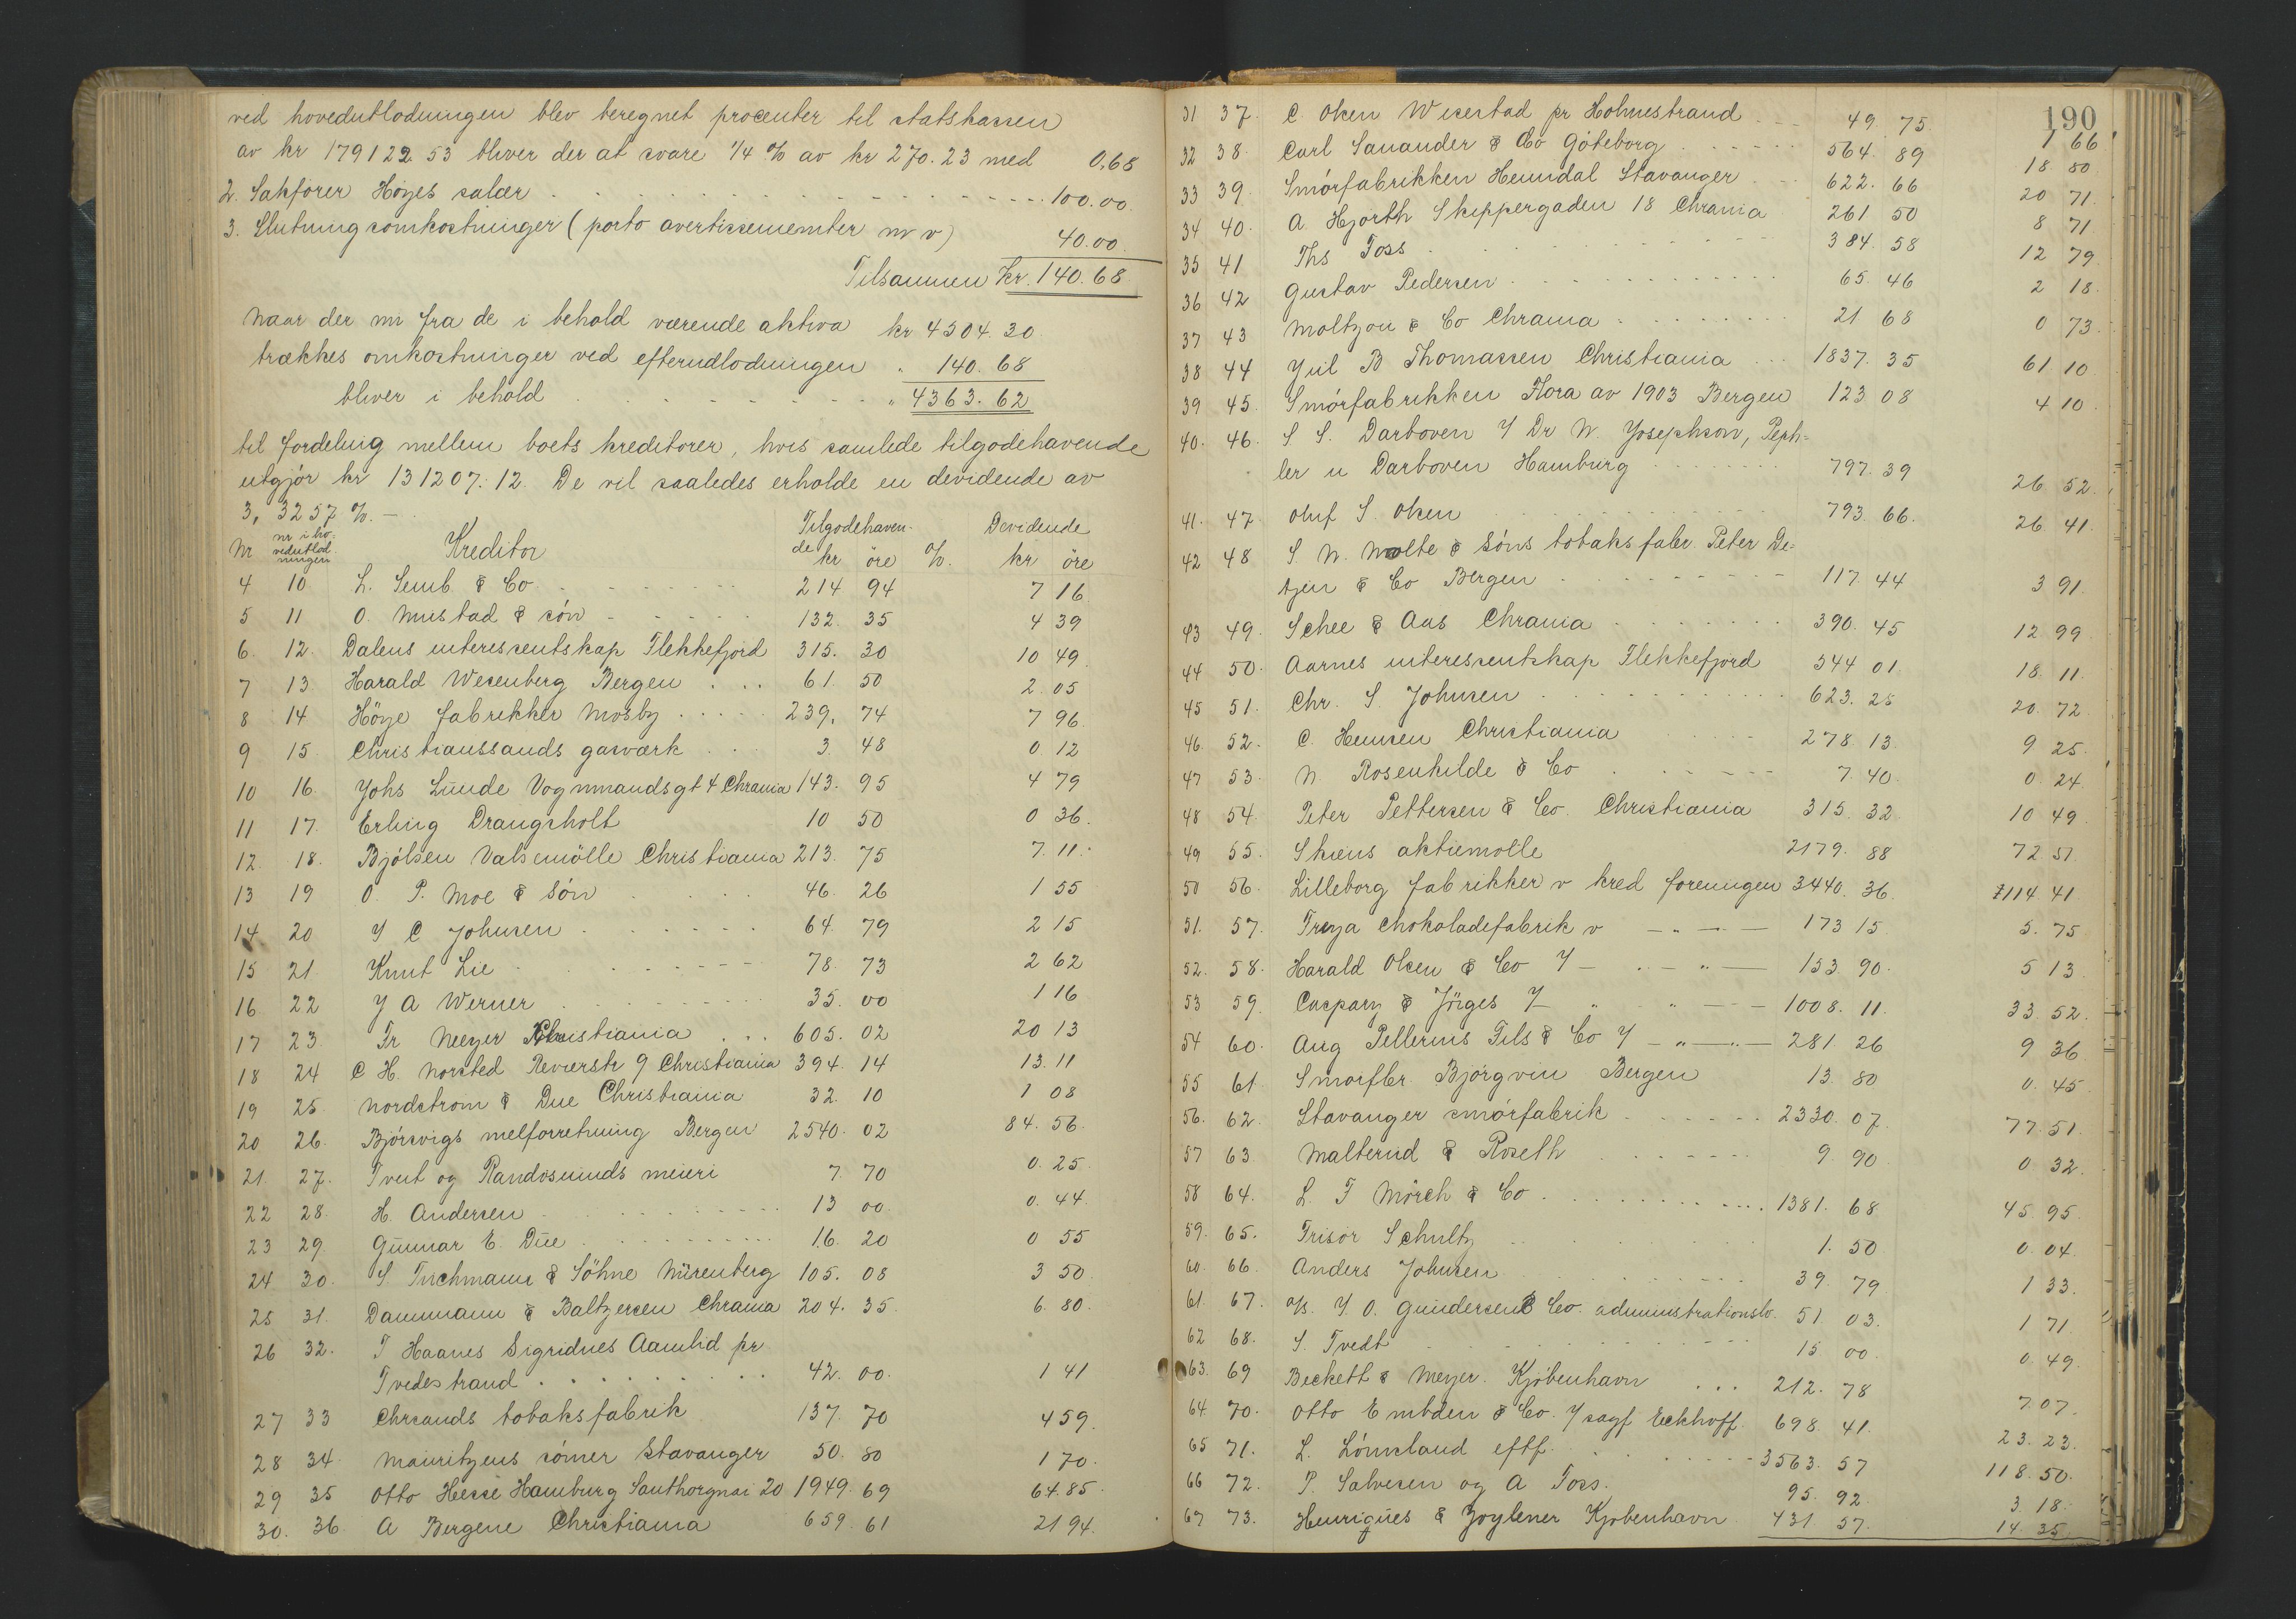 ved hovedutlodningen blev beregnet procenter til statskassen
av kr 179122.53 bliver der at svare 1/4 % av kr 270.23 med 0,68
2. Sakfører Høyes salær 100.00.
3. Slutningsomkostninger (porto avertissementer m v) 40.00.
Tilsammen kr. 140.68
Naar der nu fra de i behold værende aktiva kr 4504.30.
trækkes omkostninger ved efterudlodningen " 140.68
bliver i behold " 4363.62
til fordeling mellem boets kreditorer, hvis samlede tilgodehavende
utgjør kr 131207.12. De vil saaledes erholde en devidende av
3,3257 %. —
Nr nr i hovedutlodningen Kreditor Tilgodehavende kr öre % Devidende kr öre
4 10 L. Semb & Co 214 94 7 16
5 11 O. Mustad & søn 132. 35 4 39
6. 12. Dalens interessentskap Flekkefjord 315. 30 10 49
7 13 Harald Wesenberg Bergen 61. 50 2.05
8 14 Höye fabrikker Mosby 239. 74 7 96.
9 15 Christianssands gasværk 3. 48 0 12
10 16 Johs Lunde Vognmandsgt 4 Chrania 143. 95 4 79
11 17. Erling Drangsholt 10 50 0 36.
12. 18. Bjølsen Valsemölle Christiania 213. 75 7.11.
13 19 O. P. Moe & Søn 46. 26 1 55
14 20 J C Johnsen 64. 79 2 15
15 21 Knut Lie 78. 73 2 62
16 22 J A Werner 35. 00 1 16
17 23. Fr Meyer Christiania 605. 02 20 13
18 24 C H. Norsted Revierstr 9 Christiania 394. 14 13.11
19 25. Nordstrom & Due Christiania 32. 10 1 08
20 26. Bjørsvigs melforretning Bergen 2540. 02 84. 56.
21. 27. Tveit og Randøsunds meieri 7. 70 0. 25.
22 28. H. Andersen 13 00. 0. 44.
23 29 Gunnar E. Due 16. 20 0 55
24 30. S Tuchmann & Söhne Nürenberg 105. 08 3 50.
25 31. Dammann & Baltzersen Chrania 204. 35. 6. 80.
26 32. T Haanes Sigridnes Aamlid pr
Tvedestrand 42. 00. 1 41
27 33 Chrsands tobaksfabrik 137. 70 4 59.
28 34. Mauritzens sønner Stavanger 50. 80 1 70.
29 35 Otto Hesse Hamburg Santhorqnai 20 1949. 69 64.85.
30. 36. A Bergene Christiania 659. 61 21 94.
190
31 37. C. Olsen Wesestad pr Holmestrand 49. 75. 1 66
32 38. Carl Sanander & Co Göteborg 564. 89 18 80
33 39. Smørfabrikken Heimdal Stavanger 622. 66 20 71.
34 40. A Hjorth Skippergaden 18 Chrania 261 50 8 71
35 41 Ths Foss 384. 58 12 79.
36 42 Gustav Pedersen 65. 46 2 18.
37 43 Moltzou & Co Chrania 21 68 0 73.
38 44 Jul B Thomassen Christiania 1837. 35 61 10
39 45. Smørfabrikken Flora av 1903 Bergen 123 08 4 10.
40. 46. S S. Darboven / Dr W. Josephson, Peph-
ler u Darboven Hamburg 797. 39 26 52.
41. 47. Oluf S. Olsen 793. 66. 26. 41.
42 48 S. W. Molte & Søns tobaksfabr. Peter De-
tjen & Co Bergen 117. 44 3 91.
43 49. Schee & Aas Chrania 390. 45 12 99
44 50. Aarnes interessentskap Flekkefjord 544 01. 18. 11.
45 51. Chr. S. Johnsen 623. 25 20. 72.
46. 52. C. Hennsen Christiania 278. 13. 9 25.
47 53. N. Rosenkilde & Co 7. 40. 0. 24.
48 54. Peter Pettersen & Co. Christiania 315. 32 10 49.
49 55. Skiens aktiemølle 2179. 88 72 51.
50 56. Lilleborg fabrikker v kred foreningen 3440. 36. 114 41
51. 57. Freya Chokoladefabrik v — " — 173 15. 5. 75
52. 58. Harald Olsen & Co / — " — 153. 90. 5 13
53 59. Caspary & Jörges / " " — 1008. 11. 33. 52.
54 60. Aug Pellerins Fils & Co / — " — " — 281. 26 9 36
55 61 Smørfbr. Bjørgvin Bergen 13. 80 0. 45
56. 62. Stavanger smørfabrik 2330. 07. 77. 51.
57 63 Malterud & Roseth 9. 90 0 32.
58 64. L. F Mørch & Co 1381. 68 45. 95.
59. 65. Frisör Schultz 1. 50 0. 04.
60 66. Anders Johnsen 39. 79 1 33.
61. 67. A/s. J. O. Gundersen & Co. administrationsbo. 51. 03. 1 71
62 68. S. Tvedt 15 00. 0. 49.
63. 69 Beckett & Meyer. Kjøbenhavn 212. 78 7.07.
64. 70. Otto Embden & Co. / sagf Eckhoff 698. 41. 23. 23.
65 71. L. Lømsland eftf. 3563. 57 118. 50.
66 72. P. Salvesen og A Foss. 95. 92 3 18.
67 73. Henriques & Zoylener Kjøbenhavn 431. 57. 14. 35